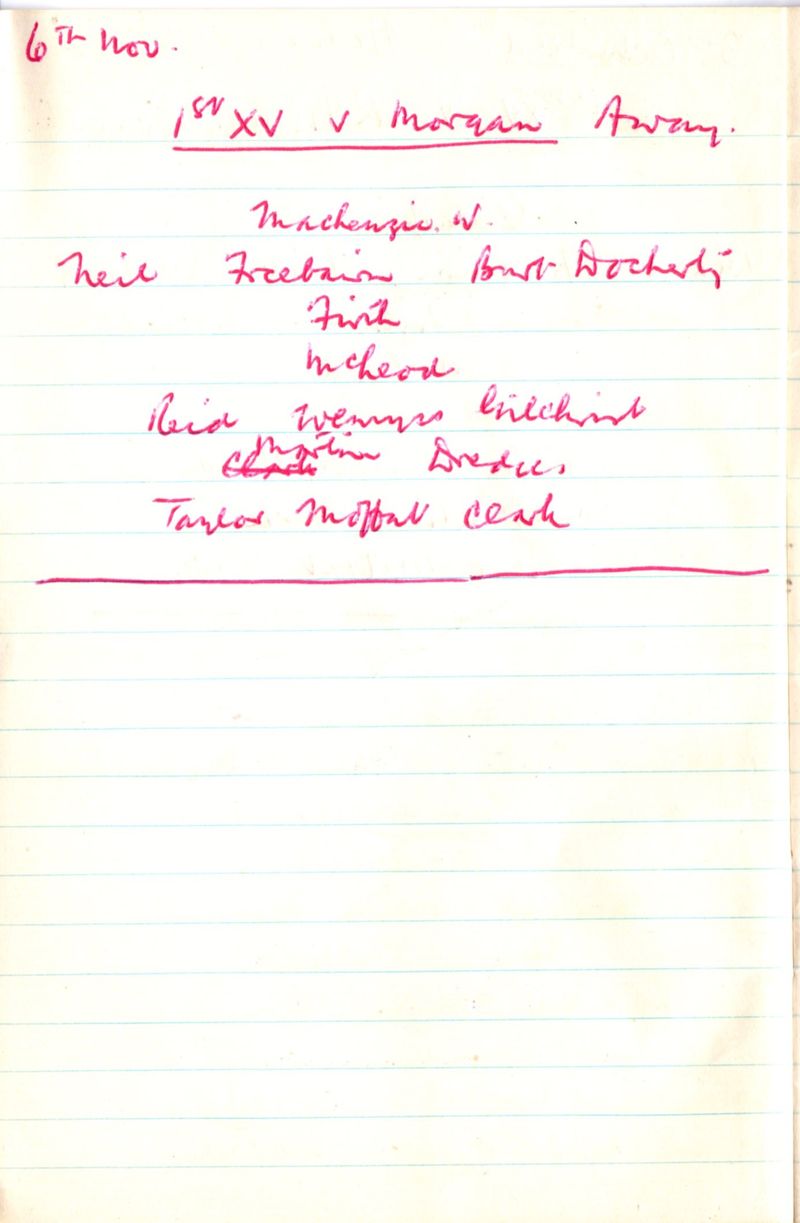 6TH Nov.
1ST XV v Morgan Away.
Mackenzie. W.
Neil Freebairn Burt Docherty
Firth
McLeod
Reid Wemyss Gilchrist
Clark Martin
Taylor Moffat Clark